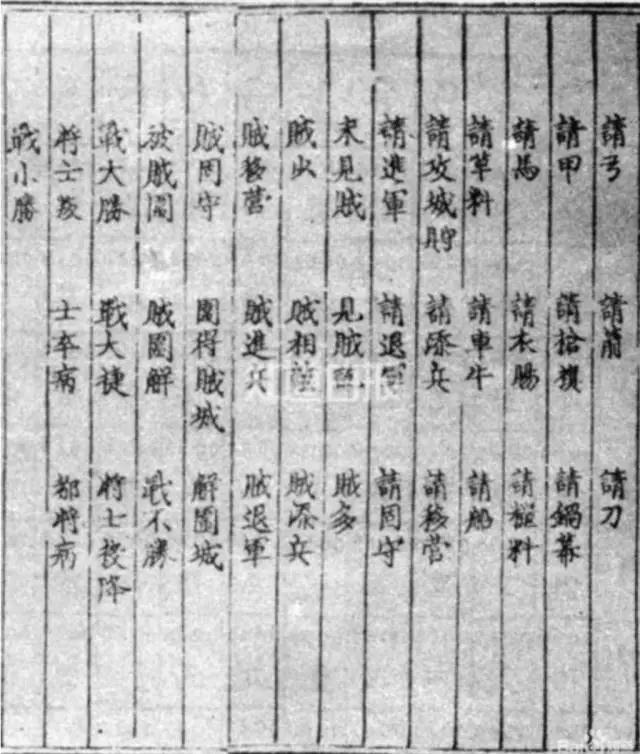 請弓 請箭 請刀
請甲 請槍旗 請鍋幕
請馬 請衣賜 請糧料
請草料 請車牛 請船
請攻城 請添兵 請移營
請進軍 請退軍 請固守
未見賊 見賊訖 賊多
賊少 賊相敵 賊添兵
賊移營 賊進兵 賊退軍
賊固守 圍得賊城 解圍城
被賊圍 賊圍解 戰不勝
戰大勝 戰大捷 將士投降
將士叛 士卒病 都將病
戰小勝